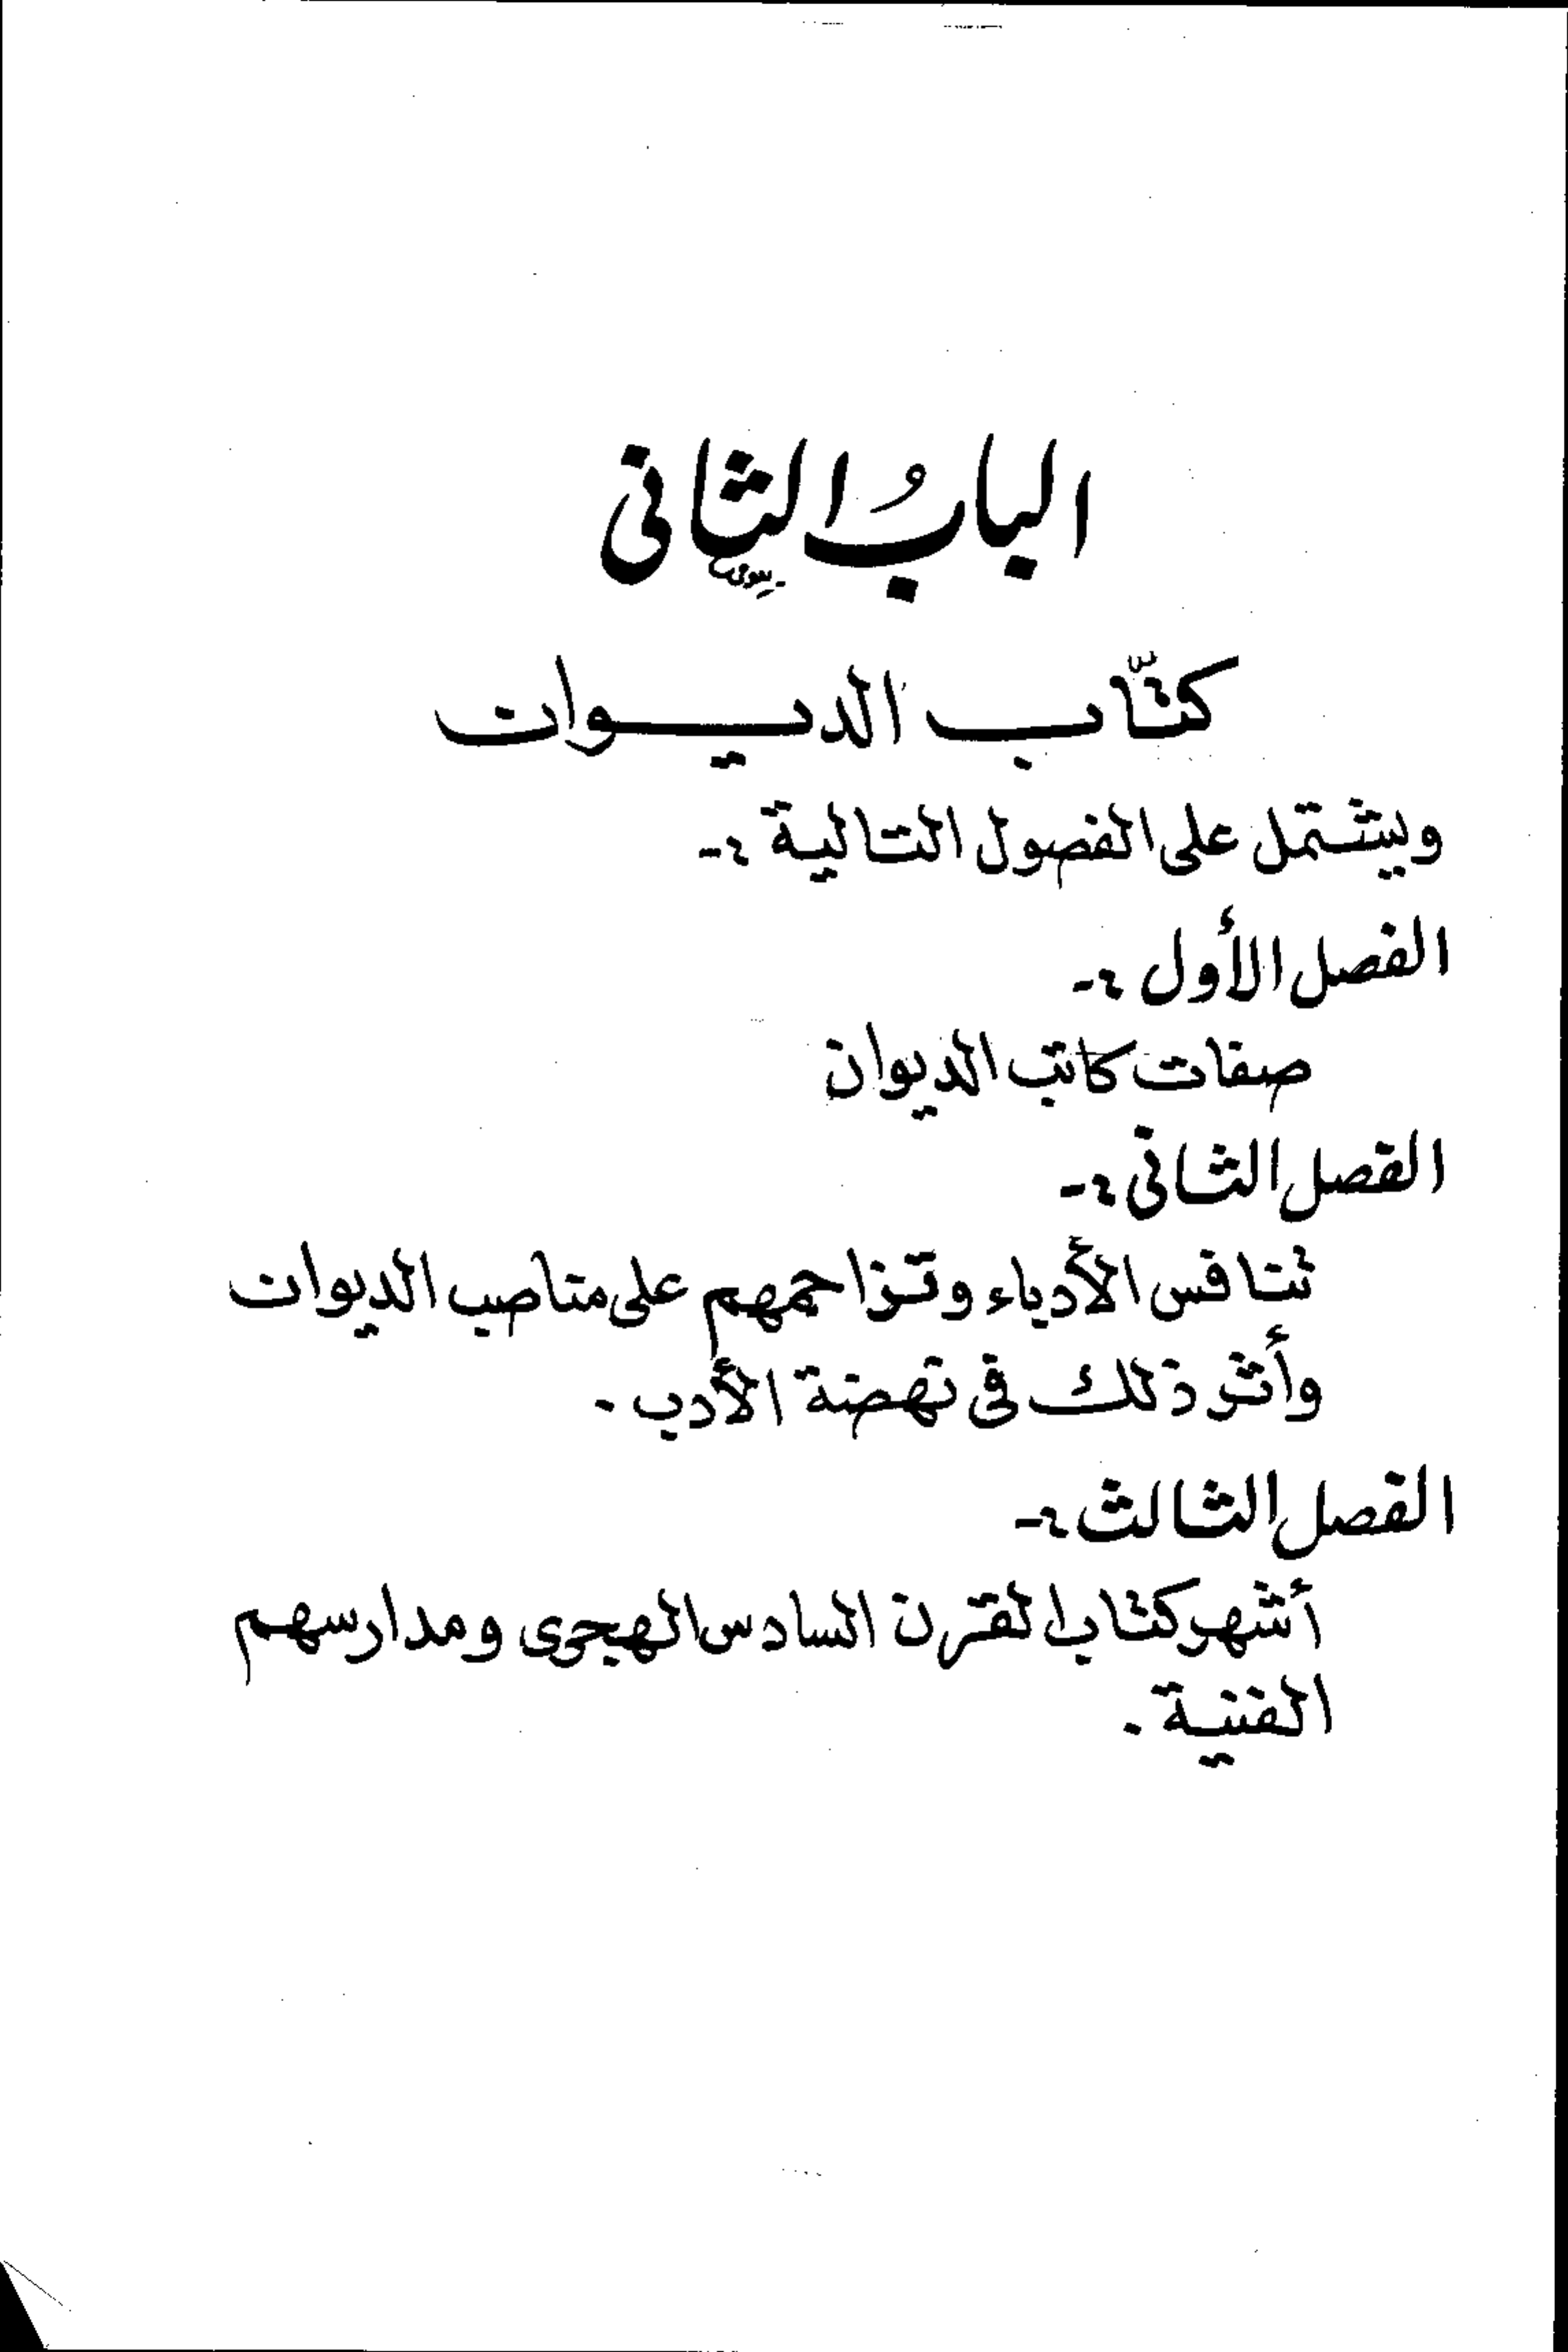 البابُ الثانى
كتّاب الديوان
ويشتمل على الفصول التالية :-
الفصل الأول :-
صفات كاتب الديوان
الفصل الثانى :-
تنافس الأدباء وتزاحمهم على مناصب الديوان
وأثر ذلك فى نهضة الأدب .
الفصل الثالث :-
أشهر كتاب القرن السادس الهجرى ومدارسهم
الفنية .